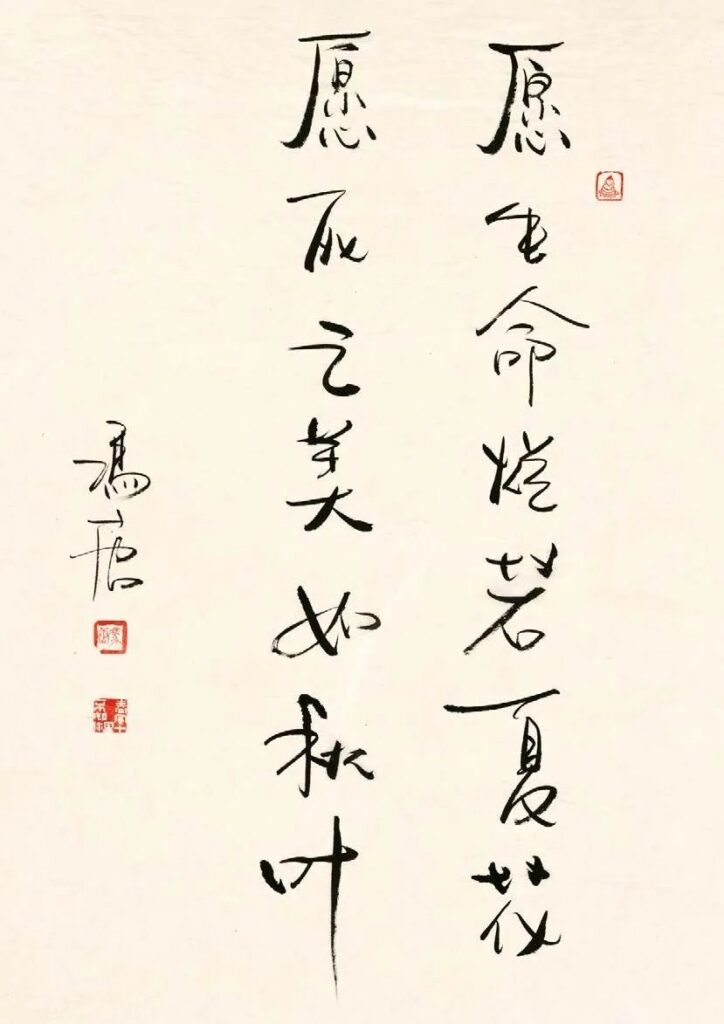 愿生命灿若夏花
愿死之美如秋叶
冯唐